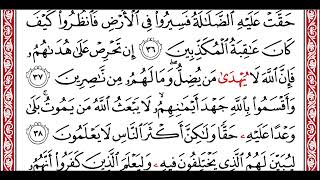 حَقَّتْ عَلَيْهِ ٱلضَّلَـٰلَةُ فَسِيرُوا۟ فِى ٱلْأَرْضِ فَٱنظُرُوا۟ كَيْفَ
كَانَ عَـٰقِبَةُ ٱلْمُكَذِّبِينَ ٣٦ إِن تَحْرِصْ عَلَىٰ هُدَىٰهُمْ
فَإِنَّ ٱللَّهَ لَا يُهْدَىٰ مَن يُضِلُّ وَمَا لَهُم مِّن نَّـٰصِرِينَ ٣٧
وَأَقْسَمُوا۟ بِٱللَّهِ جَهْدَ أَيْمَـٰنِهِمْ لَا يَبْعَثُ ٱللَّهُ مَن يَمُوتُ بَلَىٰ
وَعْدًا عَلَيْهِ حَقًّا وَلَـٰكِنَّ أَكْثَرَ ٱلنَّاسِ لَا يَعْلَمُونَ ٣٨
لِيُبَيِّنَ لَهُمُ ٱلَّذِى يَخْتَلِفُونَ فِيهِ وَلِيَعْلَمَ ٱلَّذِينَ كَفَرُوٓا۟ أَنَّهُمْ